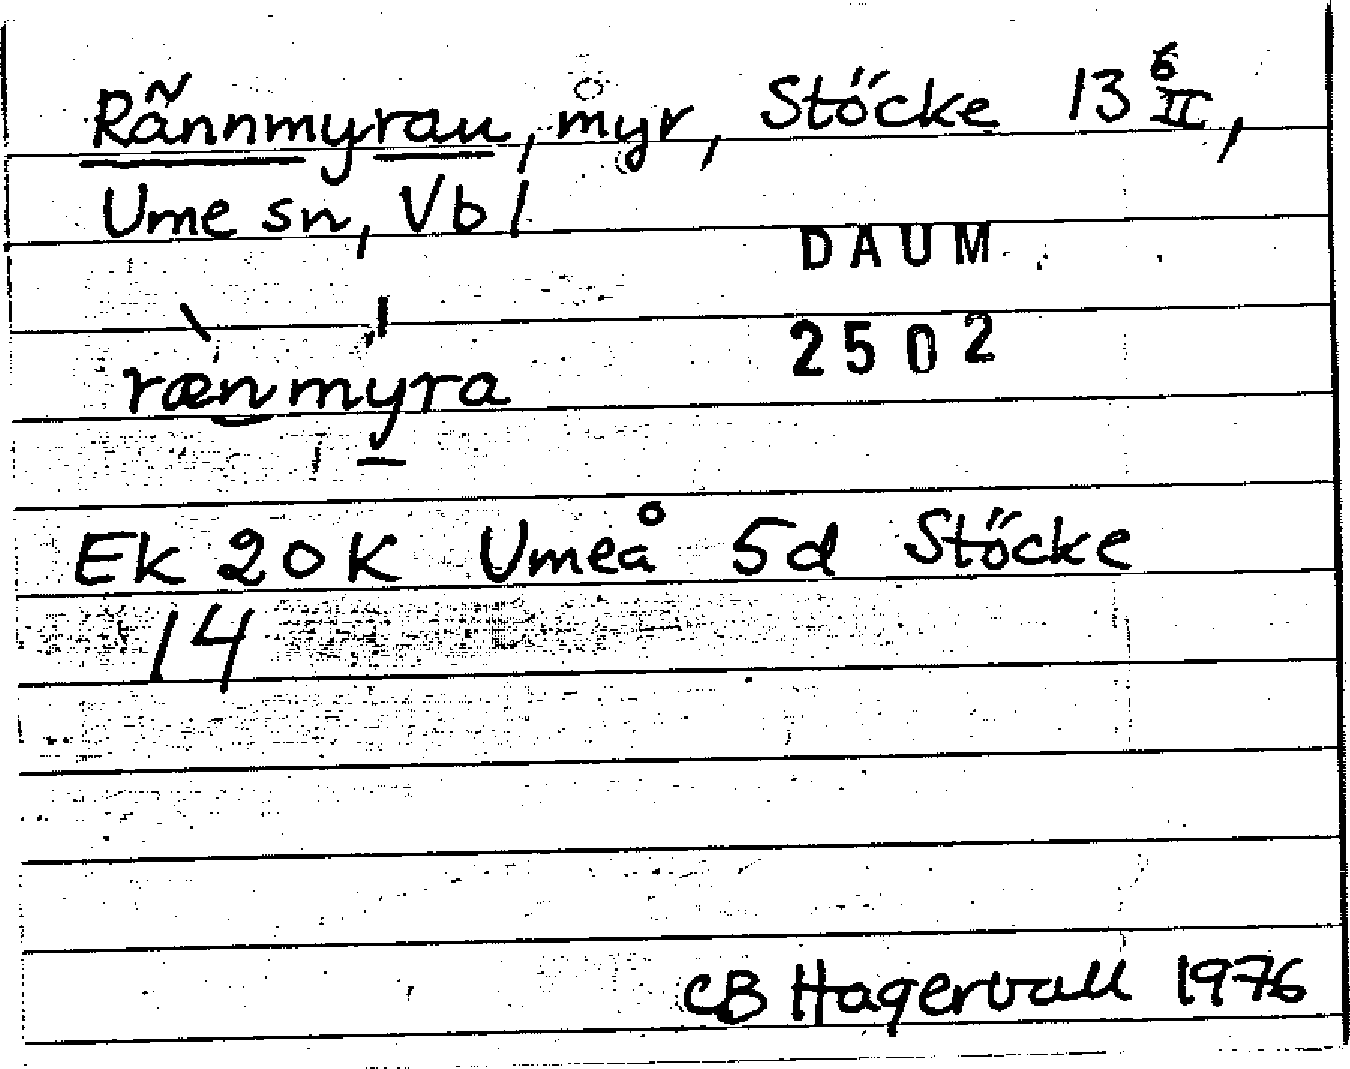 Rännmyran, myr, Stöcke 13 6/II,
Ume sn, Vbl
DAUM
2502
rænmyra
Ek 20 K Umeå 5d Stöcke
14
CB Hagervall 1976